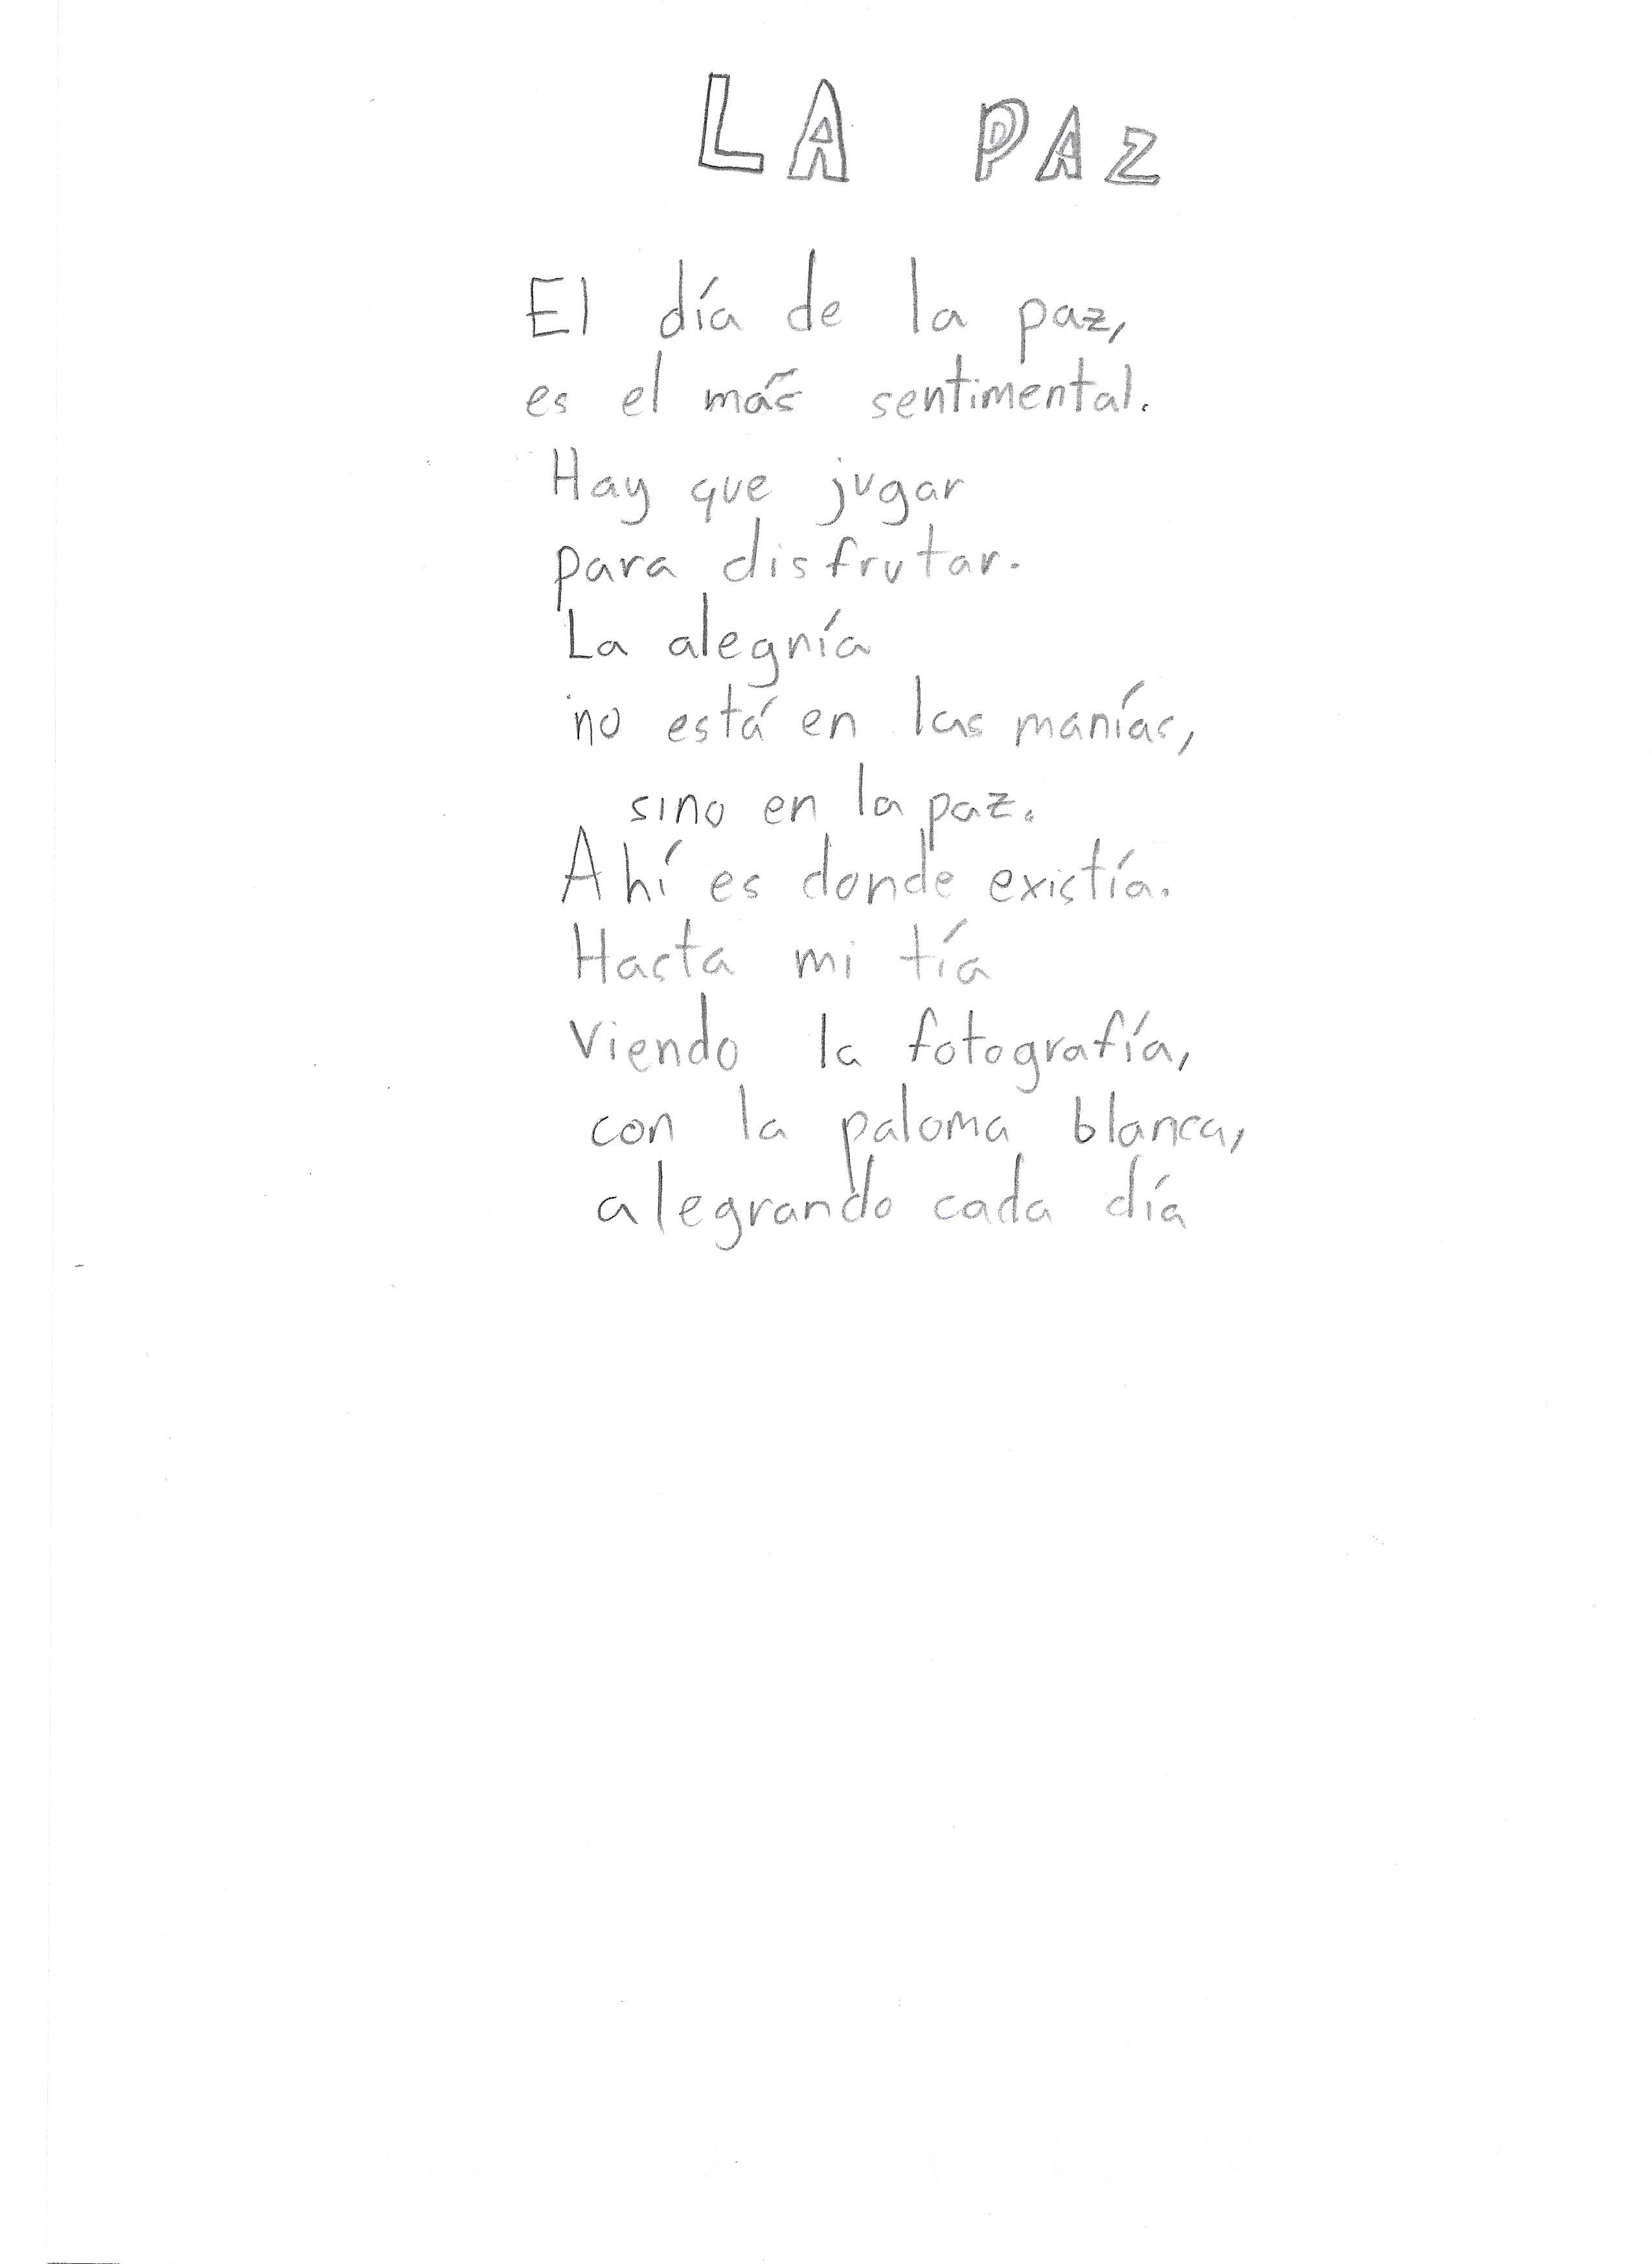 LA PAZ
El día de la paz,
es el más sentimental.
Hay que jugar
para disfrutar.
La alegría
no está en las manías,
sino en la paz.
Ahí es donde existía.
Hasta mi tía
viendo la fotografía,
con la paloma blanca,
alegrando cada día